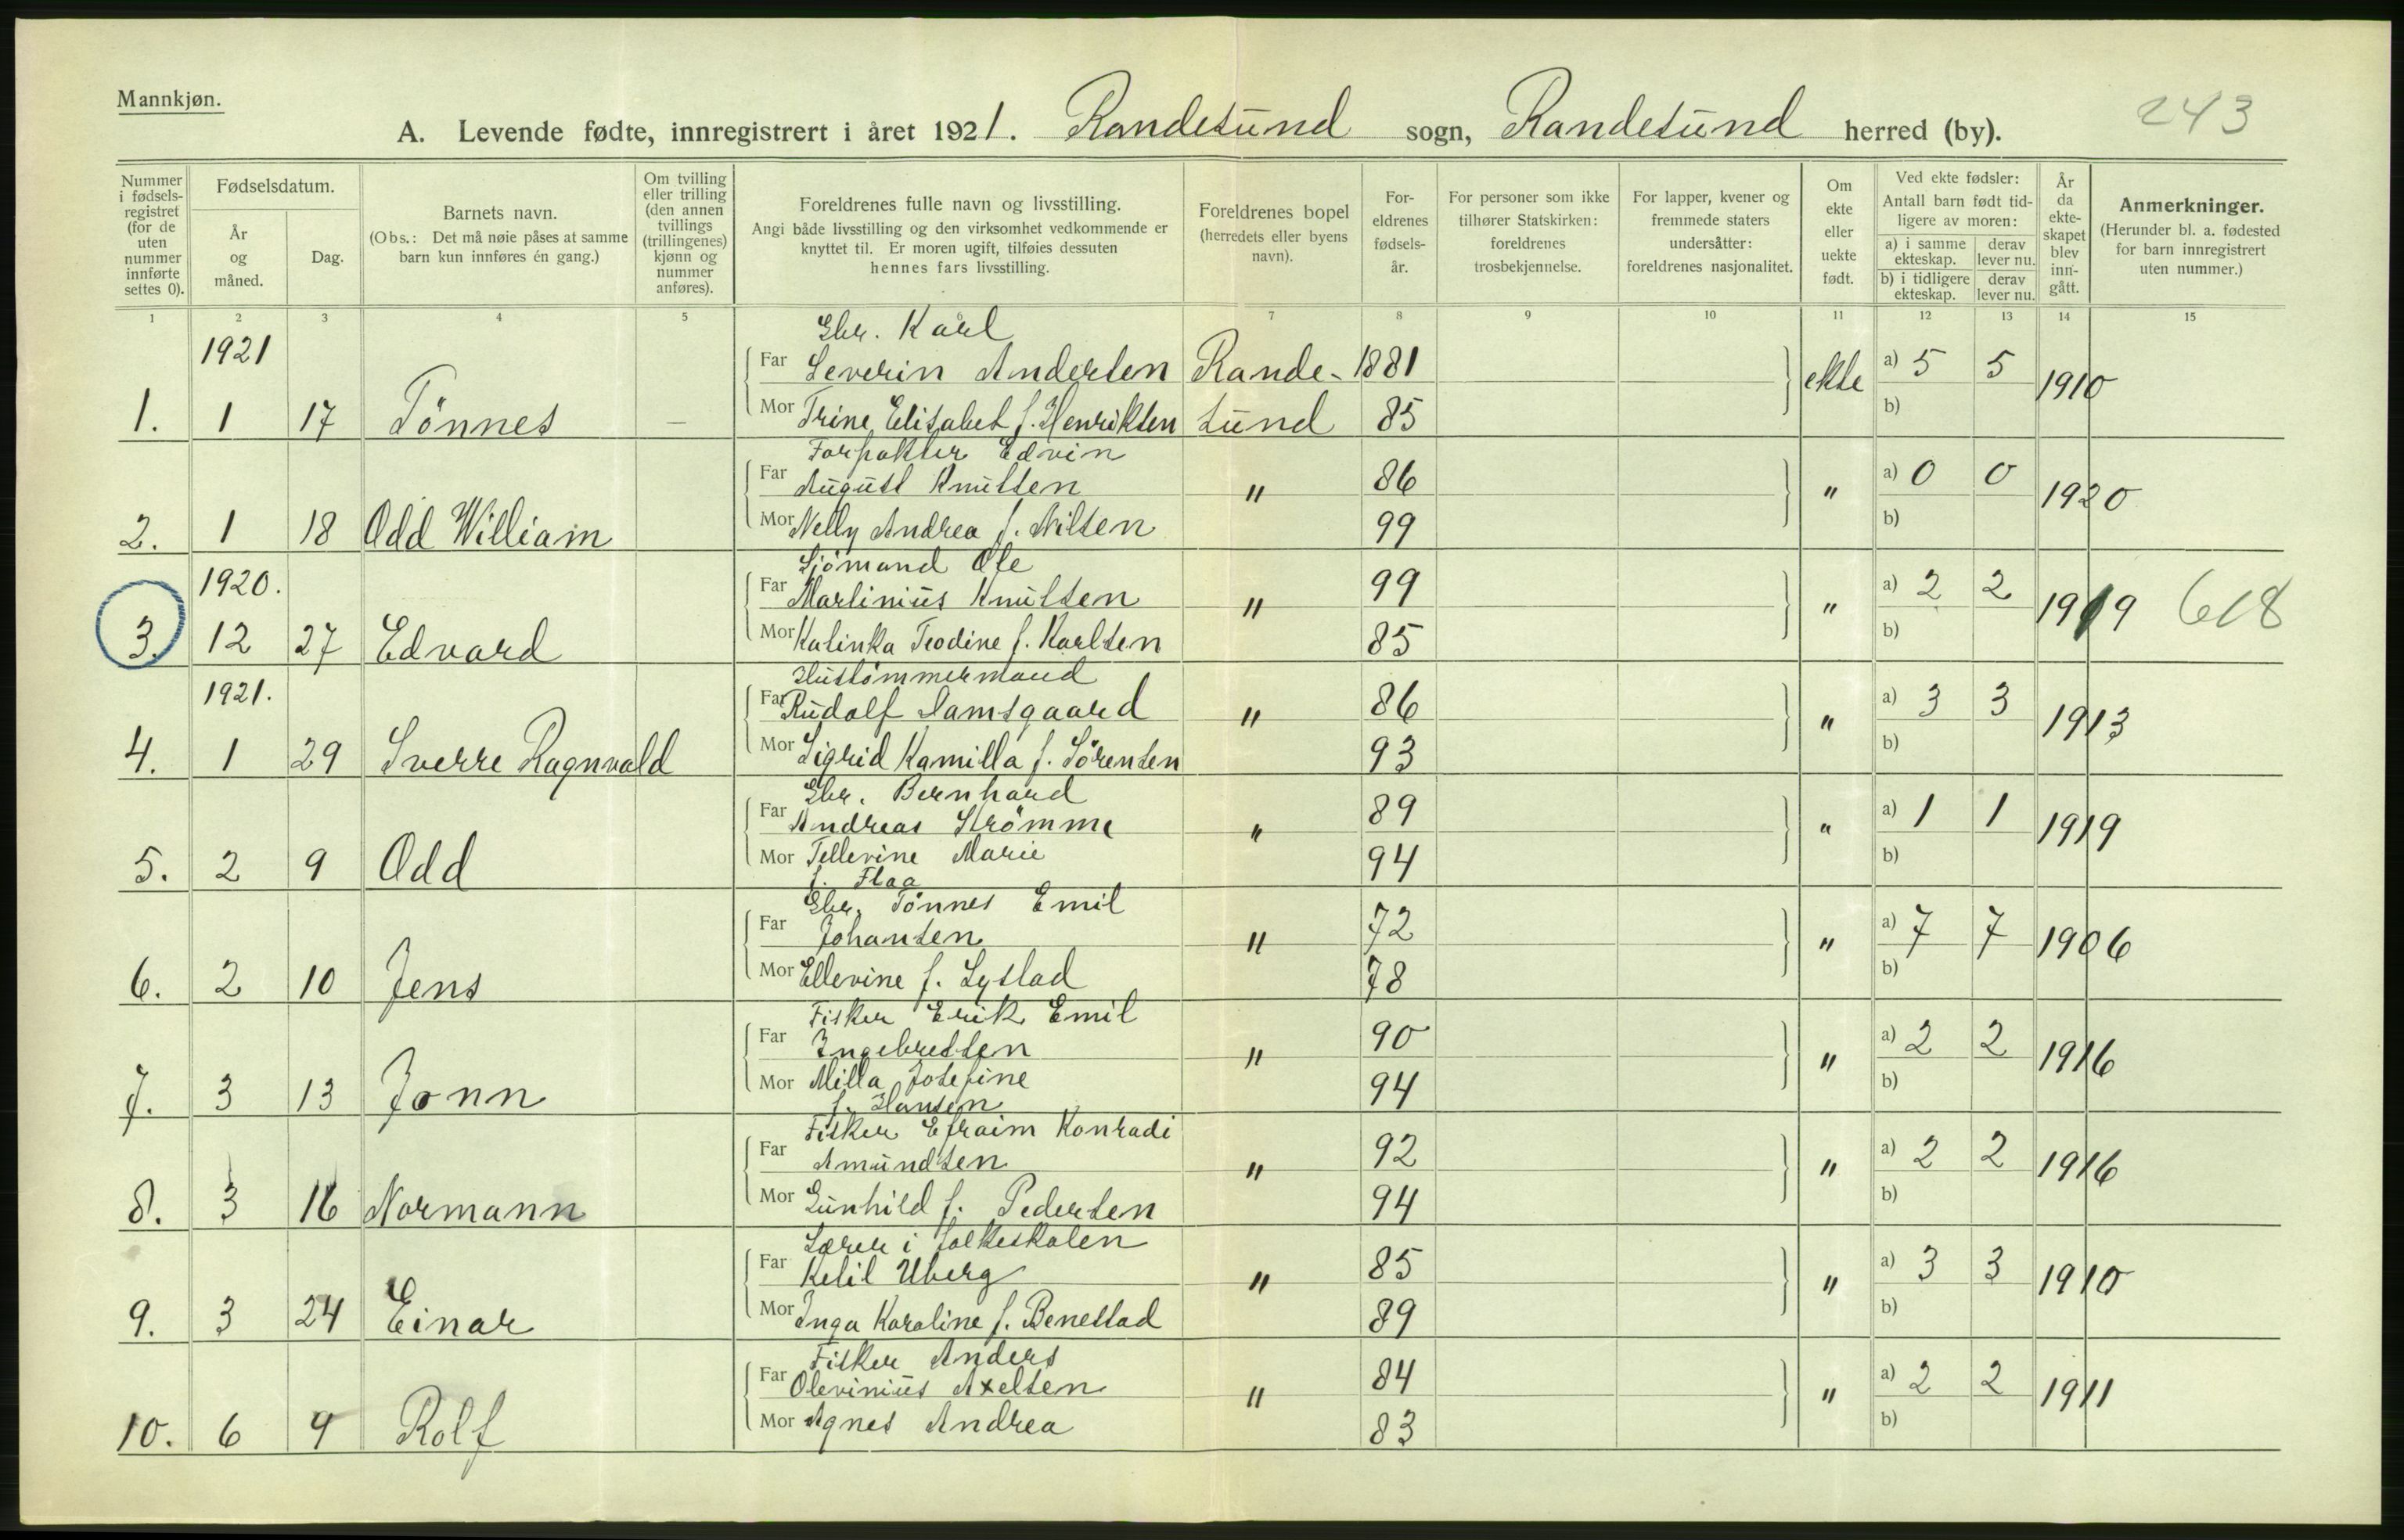 Mannkjøn.
A. Levende fødte, innregistrert i året 1921. Randesund sogn, Randesund herred (by).
243
Nummer i fødsels-registret (for de uten nummer innførte settes 0).
Fødselsdatum.
År og måned.
Dag.
Barnets navn.
(Obs.: Det må nøie påses at samme barn kun innføres én gang.)
Om tvilling eller trilling (den annen tvillings (trillingenes) kjønn og nummer anføres).
Foreldrenes fulle navn og livsstilling.
Angi både livsstilling og den virksomhet vedkommende er knyttet til. Er moren ugift, tilføies dessuten hennes fars livsstilling.
Foreldrenes bopel (herredets eller byens navn).
For-eldrenes fødsels-år.
For personer som ikke tilhører Statskirken: foreldrenes trosbekjennelse.
For lapper, kvener og fremmede staters undersåtter: foreldrenes nasjonalitet.
Om ekte eller uekte født.
Ved ekte fødsler: Antall barn født tid-ligere av moren:
a) i samme ekteskap. derav lever nu.
b) i tidligere ekteskap. derav lever nu.
År da ekte-skapet blev inn-gått.
Anmerkninger.
(Herunder bl. a. fødested for barn innregistrert uten nummer.)
1 2 3 4 5 7 8 9 10 11 12 13 14 15
1921 Gbr. Karl
Far Severin Andersen Rande- 1881 ekte a) 5 5 1910
1. 1 17 Tönnes — Mor Trine Elisabet f. Henriksen sund 85 b)
Forpakter Edvin
Far August Knutsen " 86 " a) 0 0 1920
2. 1 18 Odd William Mor Nelly Andrea f. Nilsen 99 b)
1920. Sjömand Ole
Far Martinius Knutsen " 99 " a) 2 2 1919 618
3. 12 27 Edvard Mor Kalinka Teodine f. Karlsen 85 b)
1921. Hustömmermand
Far Rudolf Damsgaard " 86 " a) 3 3 1913
4. 1 29 Sverre Ragnvald Mor Sigrid Kamilla f. Sörensen 93 b)
Gbr. Bernhard
Far Andreas Strömme " 89 " a) 1 1 1919
5. 2 9 Odd Mor Tellevine Marie 94 b)
f. Flaa
Gbr. Tönnes Emil
Far Johansen " 72 " a) 7 7 1906
6. 2 10 Jens Mor Ellevine f. Lystad 78 b)
Fisker Erik Emil
Far Ingebretsen " 90 " a) 2 2 1916
7. 3 13 Jonn Mor Milla Josefine 94 b)
f. Hansen
Fisker Efraim Konradi
Far Amundsen " 92 " a) 2 2 1916
8. 3 16 Normann Mor Gunhild f. Pedersen 94 b)
Lærer i folkeskolen
Far Ketil Uberg " 85 " a) 3 3 1910
9. 3 24 Einar Mor Inga Karoline f. Benestad 89 b)
Fisker Anders
Far Olevinius Axelsen " 84 " a) 2 2 1911
10. 6 9 Rolf Mor Agnes Andrea 83 b)